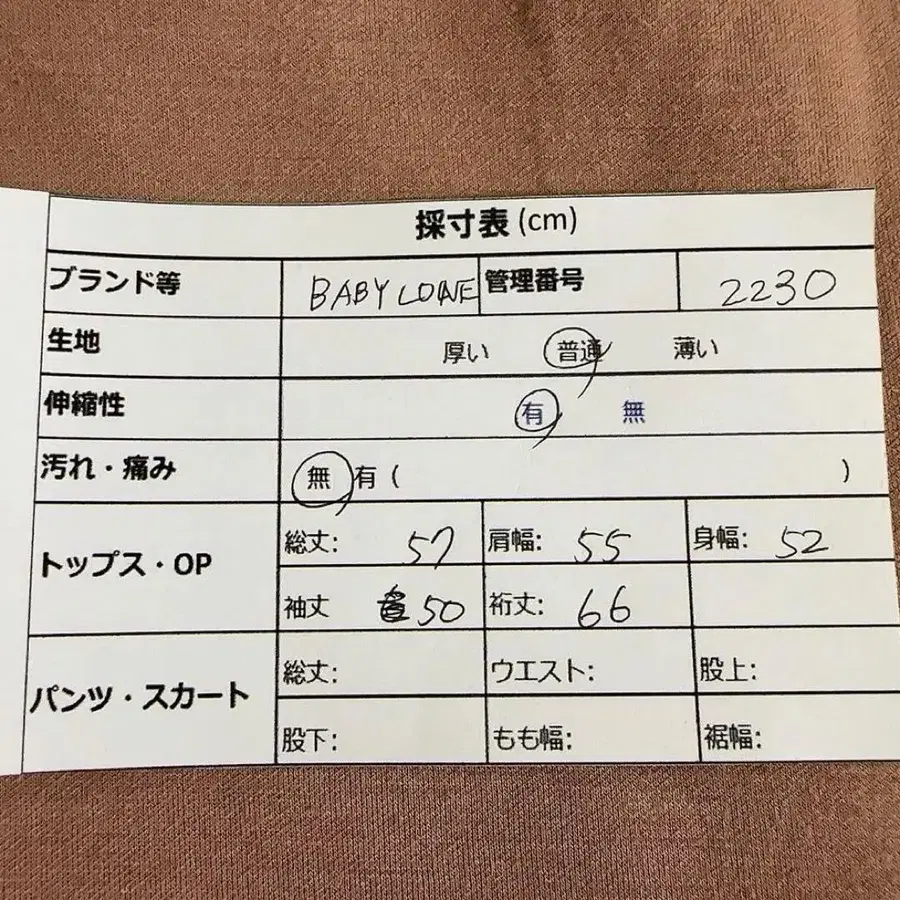 採寸表 (cm)
ブランド等 BABYLONE 管理番号 2230
生地 厚い 普通 薄い
伸縮性 有 無
汚れ・痛み 無 有 ( )
トップス・OP
総丈: 57 肩幅: 55 身幅: 52
袖丈 50 裄丈: 66
パンツ・スカート
総丈: ウエスト: 股上:
股下: もも幅: 裾幅: